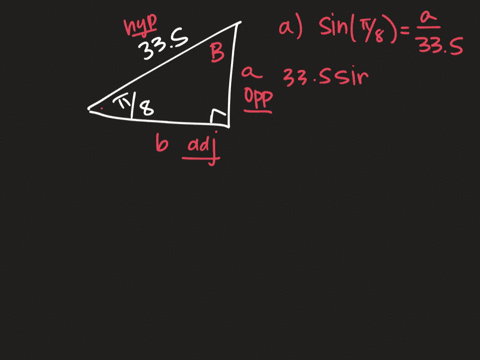 hyp
33.5
B
π/8
a
opp
b adj
a) sin(π/8) = a/33.5
33.5 sin